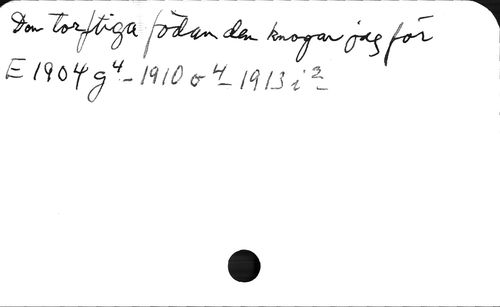 Den torftiga födan den knogar jag för
E 1904 g⁴ - 1910 o⁴ - 1913 i²